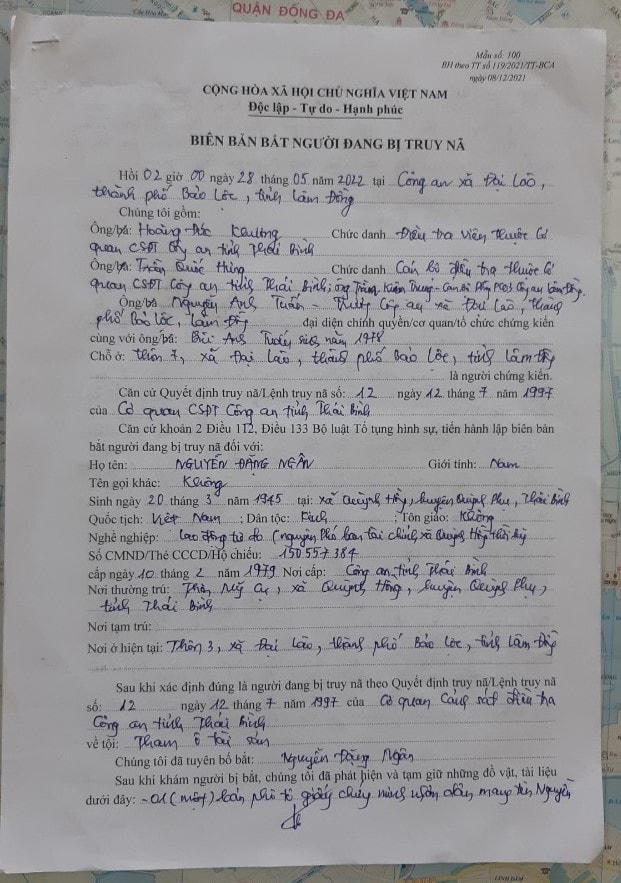 QUẬN ĐỐNG ĐA
Mẫu số: 100
BH theo TT số 119/2021/TT-BCA
ngày 08/12/2021
CỘNG HÒA XÃ HỘI CHỦ NGHĨA VIỆT NAM
Độc lập - Tự do - Hạnh phúc
BIÊN BẢN BẮT NGƯỜI ĐANG BỊ TRUY NÃ
Hồi 02 giờ 00 ngày 28 tháng 05 năm 2022 tại Công an xã Đại Lào,
thành phố Bảo Lộc, tỉnh Lâm Đồng
Chúng tôi gồm:
Ông/bà: Hoàng Đức Khương Chức danh Điều tra viên thuộc Cơ
quan CSĐT Công an tỉnh Thái Bình
Ông/bà: Trần Quốc Hùng Chức danh Cán bộ điều tra thuộc Cơ
quan CSĐT Công an tỉnh Thái Bình; ông Kiên Trung - Cán bộ Phòng PC03 Công an Lâm Đồng.
Ông/bà Nguyễn Anh Tuấn - Trưởng Công an xã Đại Lào, thành
phố Bảo Lộc, Lâm Đồng đại diện chính quyền/cơ quan/tổ chức chứng kiến
cùng với ông/bà: Bùi Anh Tuấn sinh năm 1978
Chỗ ở: thôn 7, xã Đại Lào, thành phố Bảo Lộc, tỉnh Lâm Đồng
là người chứng kiến.
Căn cứ Quyết định truy nã/Lệnh truy nã số: 12 ngày 12 tháng 7 năm 1997
của Cơ quan CSĐT Công an tỉnh Thái Bình
Căn cứ khoản 2 Điều 112, Điều 133 Bộ luật Tố tụng hình sự, tiến hành lập biên bản
bắt người đang bị truy nã đối với:
Họ tên: NGUYỄN ĐĂNG NGÂN Giới tính: Nam
Tên gọi khác: Không
Sinh ngày 20 tháng 3 năm 1945 tại: xã Quỳnh Hồng, huyện Quỳnh Phụ, Thái Bình
Quốc tịch: Việt Nam; Dân tộc: Kinh; Tôn giáo: Không
Nghề nghiệp: Lao động tự do (nguyên Phó ban tài chính xã Quỳnh Hồng
Số CMND/Thẻ CCCD/Hộ chiếu: 150557384
cấp ngày 10 tháng 2 năm 1979 Nơi cấp: Công an tỉnh Thái Bình
Nơi thường trú: Thôn Mỹ Cự, xã Quỳnh Hồng, huyện Quỳnh Phụ,
tỉnh Thái Bình
Nơi tạm trú:
Nơi ở hiện tại: Thôn 3, xã Đại Lào, thành phố Bảo Lộc, tỉnh Lâm Đồng
Sau khi xác định đúng là người đang bị truy nã theo Quyết định truy nã/Lệnh truy nã
số: 12 ngày 12 tháng 7 năm 1997 của Cơ quan Cảnh sát điều tra
Công an tỉnh Thái Bình
về tội: Tham ô tài sản
Chúng tôi đã tuyên bố bắt: Nguyễn Đăng Ngân
Sau khi khám người bị bắt, chúng tôi đã phát hiện và tạm giữ những đồ vật, tài liệu
dưới đây: - 01 (một) bản phô tô giấy chứng minh nhân dân mang tên Nguyễn